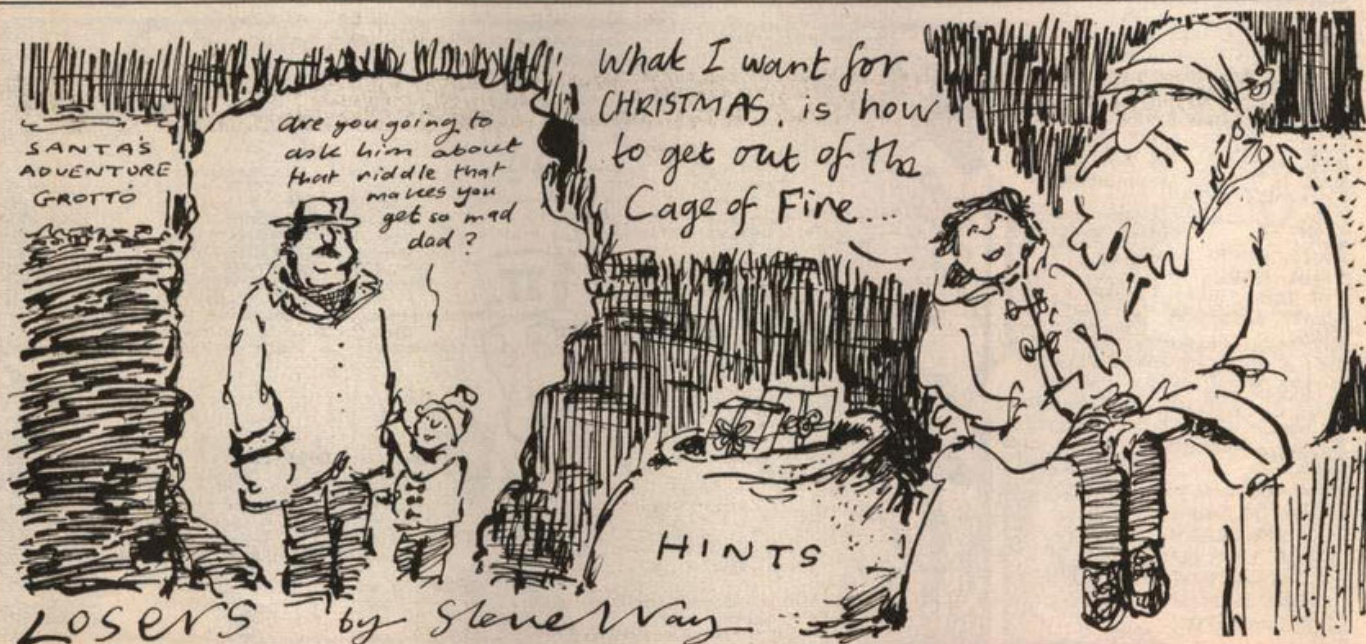 SANTA'S
ADVENTURE
GROTTO
are you going to
ask him about
that riddle that
makes you
get so mad
dad?
What I want for
CHRISTMAS. is how
to get out of the
Cage of Fire...
HINTS
Losers by Steve Way